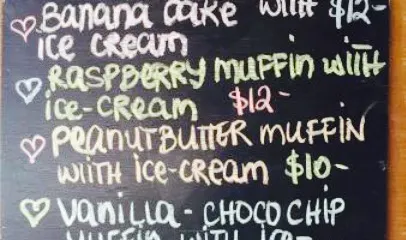 Banana cake with $12-
ice cream
Raspberry muffin wiith
ice-cream $12-
Peanutbutter muffin
wiith ice-cream $10-
Vanilla - choco chip
muffin with ice-